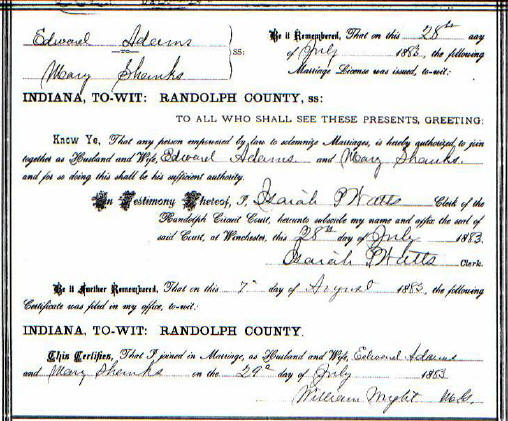 Edward Adams
to
Mary Shanks
ss:
Be it Remembered, That on this 28th day
of July 1883, the following
Marriage License was issued, to-wit:
INDIANA, TO-WIT: RANDOLPH COUNTY, ss:
TO ALL WHO SHALL SEE THESE PRESENTS, GREETING:
Know Ye, That any person empowered by law to solemnize Marriages, is hereby authorized, to join
together as Husband and Wife, Edward Adams and Mary Shanks.
and for so doing this shall be his sufficient authority.
In Testimony Whereof, I, Isaiah P Watts Clerk of the
Randolph Circuit Court, hereunto subscribe my name and affix the seal of
said Court, at Winchester, this 28th day of July 1883.
Isaiah P Watts Clerk.
Be it Further Remembered, That on this 7th day of August 1883, the following
Certificate was filed in my office, to-wit:
INDIANA, TO-WIT: RANDOLPH COUNTY.
This Certifies, That I joined in Marriage, as Husband and Wife, Edward Adams
and Mary Shanks on the 29th day of July 1883
William Wright M.G.